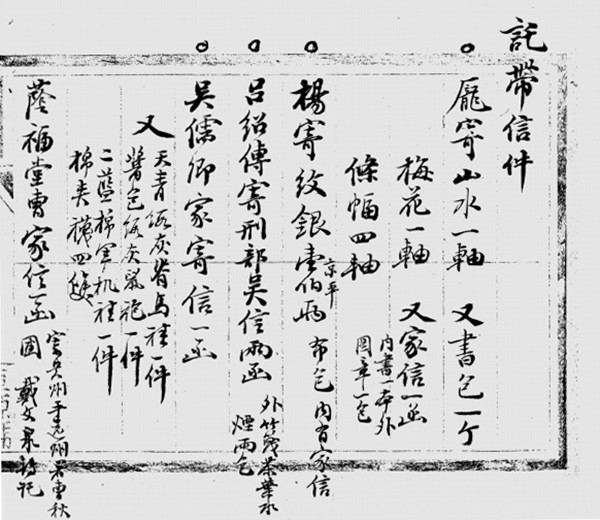 託帶信件
龐寄山水一軸 又書包一个
梅花一軸 又家信一函
內書一本外
圖章一包
條幅四軸
楊寄紋銀壹佰兩 京平 布包內有家信
呂紹傳寄刑部吳信兩函 外竹茶葉
煙兩包
吳儒卿家寄信一函
又 天青緞灰脊馬褂一件
醬色緞灰鼠袍一件
二藍棉軍机褂一件
棉夾襪四雙
蔭福堂曹家信函